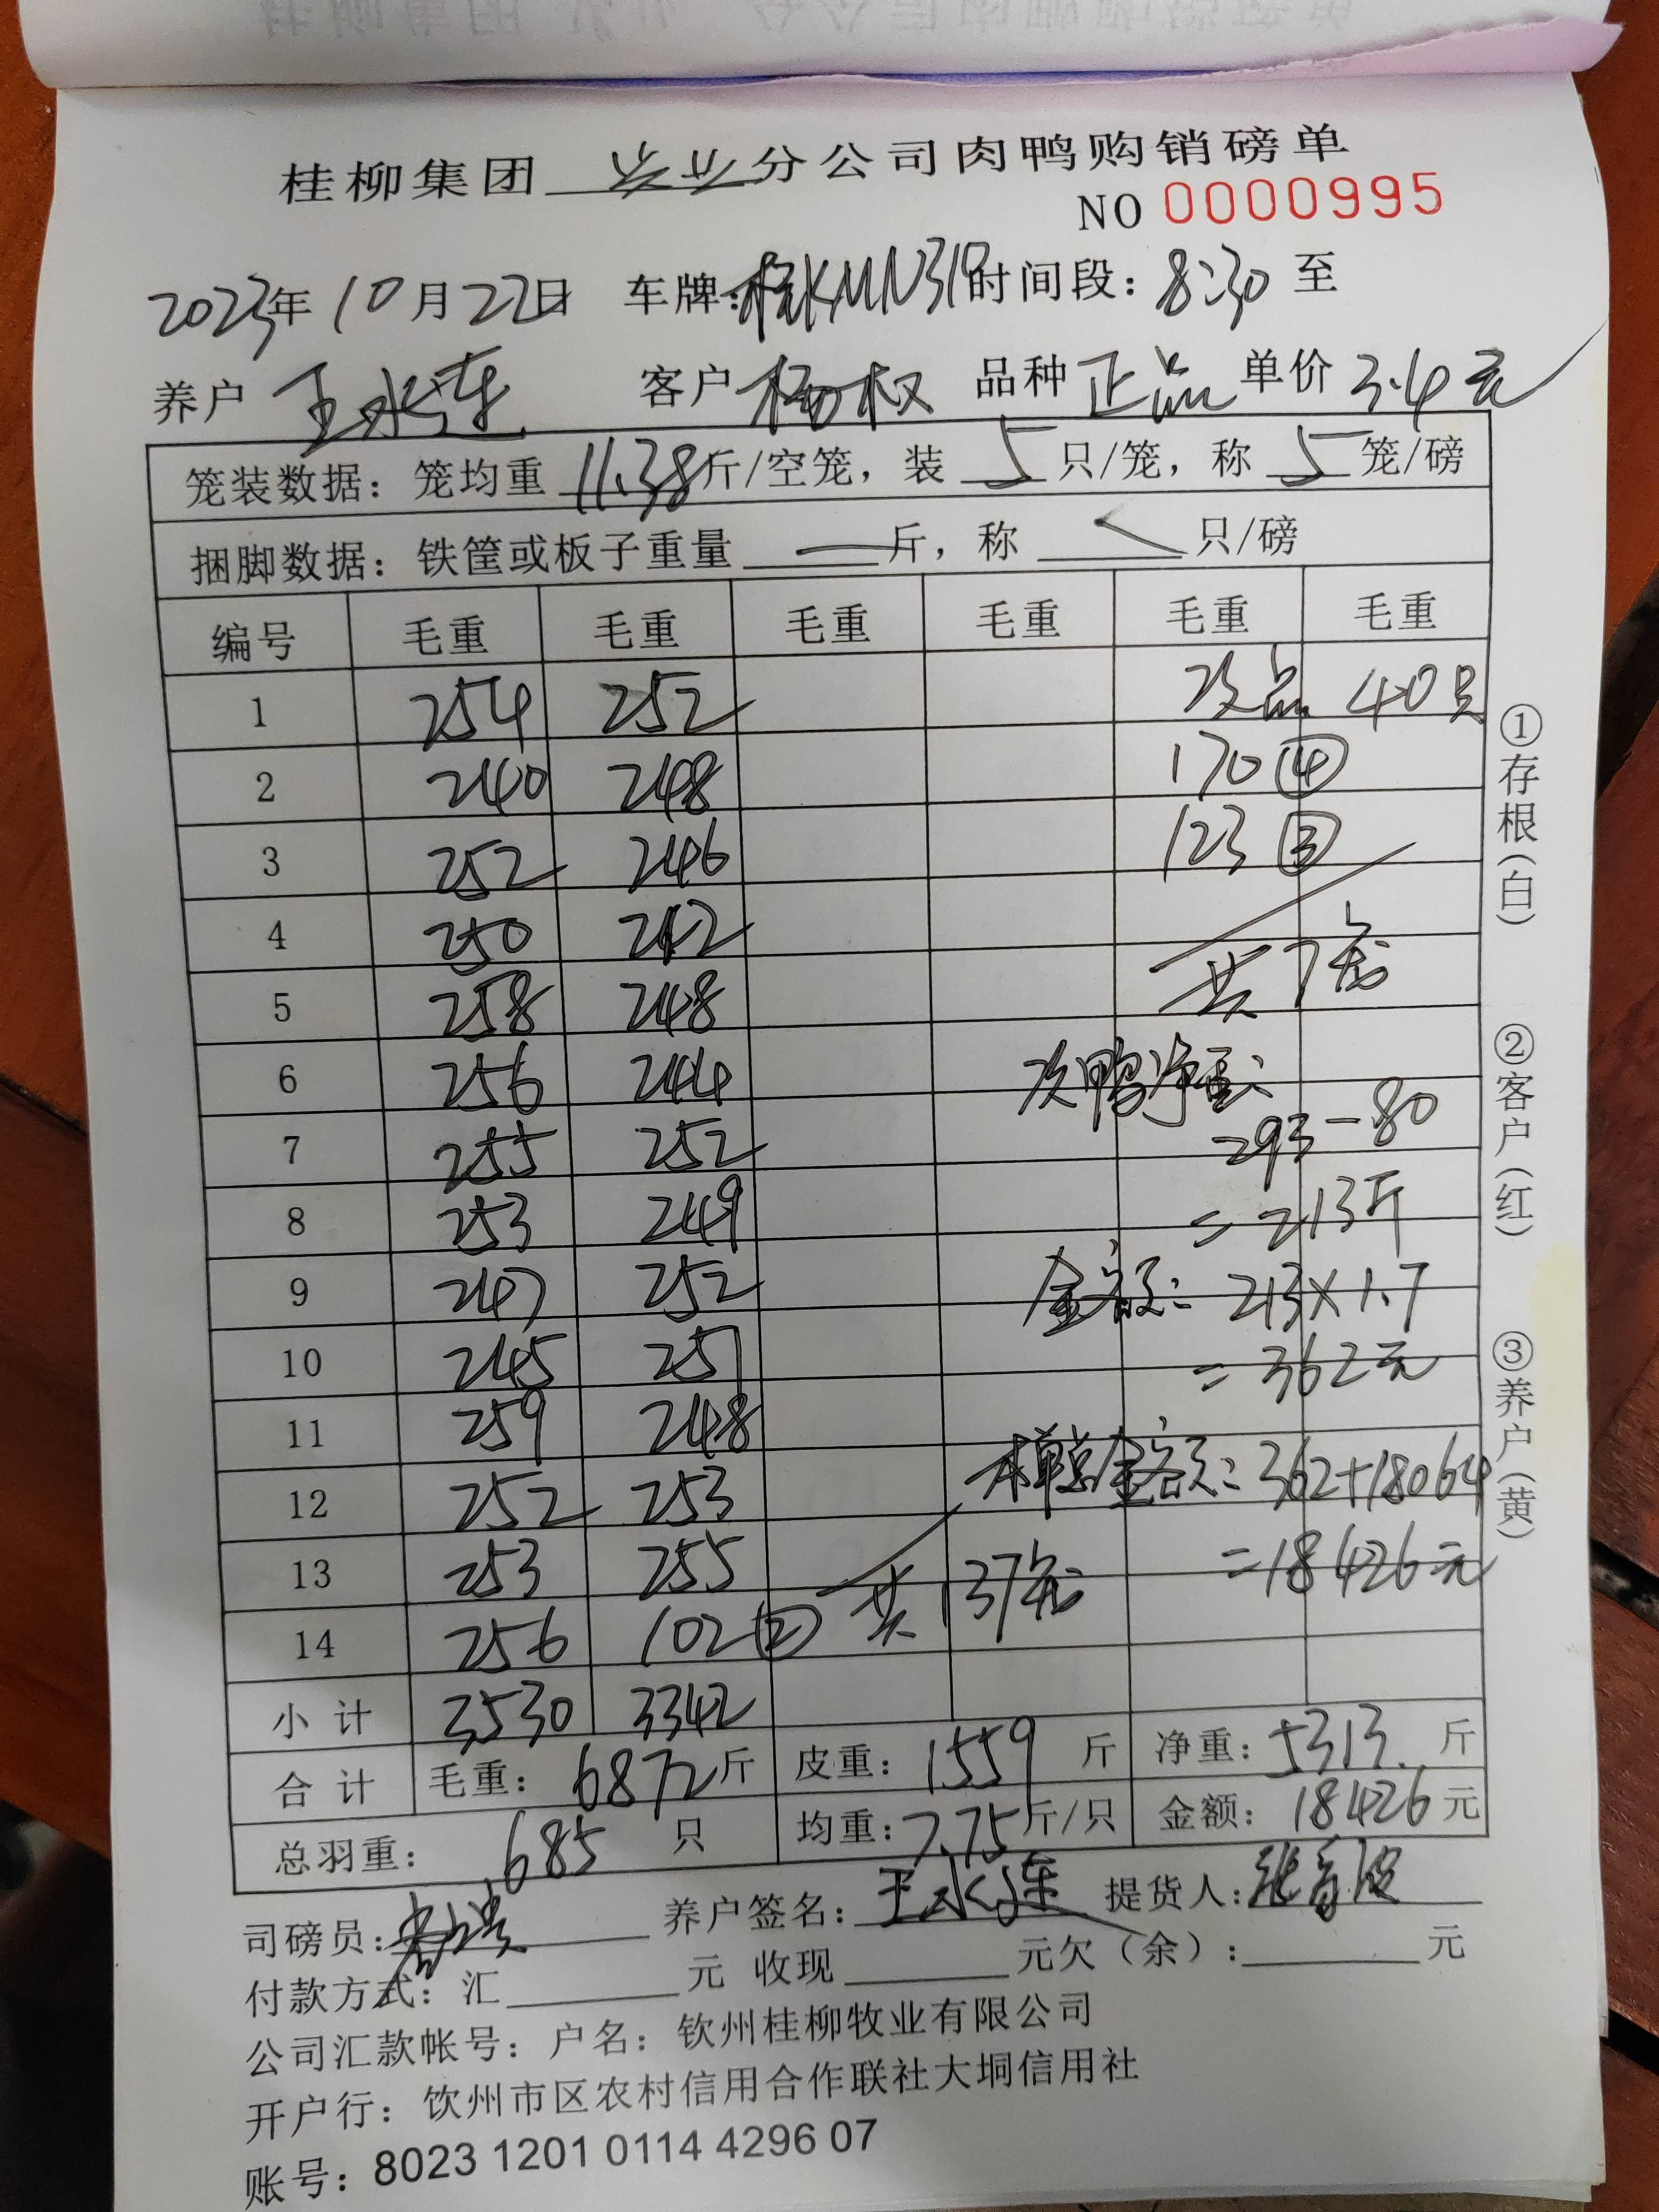 桂柳集团 分公司肉鸭购销磅单
NO 0000995
2023年10月22日 车牌:桂KMN319 时间段:8:30 至
养户 王水连 客户 杨权 品种 正品 单价 3.4元
笼装数据:笼均重 11.38 斤/空笼,装 5 只/笼,称 5 笼/磅
捆脚数据:铁筐或板子重量 — 斤,称 只/磅
编号 毛重 毛重 毛重 毛重 毛重 毛重
1 254 252 次品 40只
2 240 248 170④
3 252 246 123③
4 250 242
5 258 248 共7笼
6 256 244 次鸭净重:
7 255 252 293-80
8 253 249 =213斤
9 247 252 金额:213×1.7
10 245 251 =362元
11 259 248
12 252 253 本单总金额:362+18064
13 253 255 =18426元
14 256 102② 共137笼
小计 3530 3342
合计 毛重:6872斤 皮重:1559斤 净重:5313.斤
总羽重:685只 均重:7.75斤/只 金额:18426元
司磅员: 养户签名:王水连 提货人:
付款方式:汇 元 收现 元欠(余): 元
公司汇款帐号:户名:钦州桂柳牧业有限公司
开户行:饮州市区农村信用合作联社大垌信用社
账号:8023 1201 0114 4296 07
①存根(白) ②客户(红) ③养户(黄)